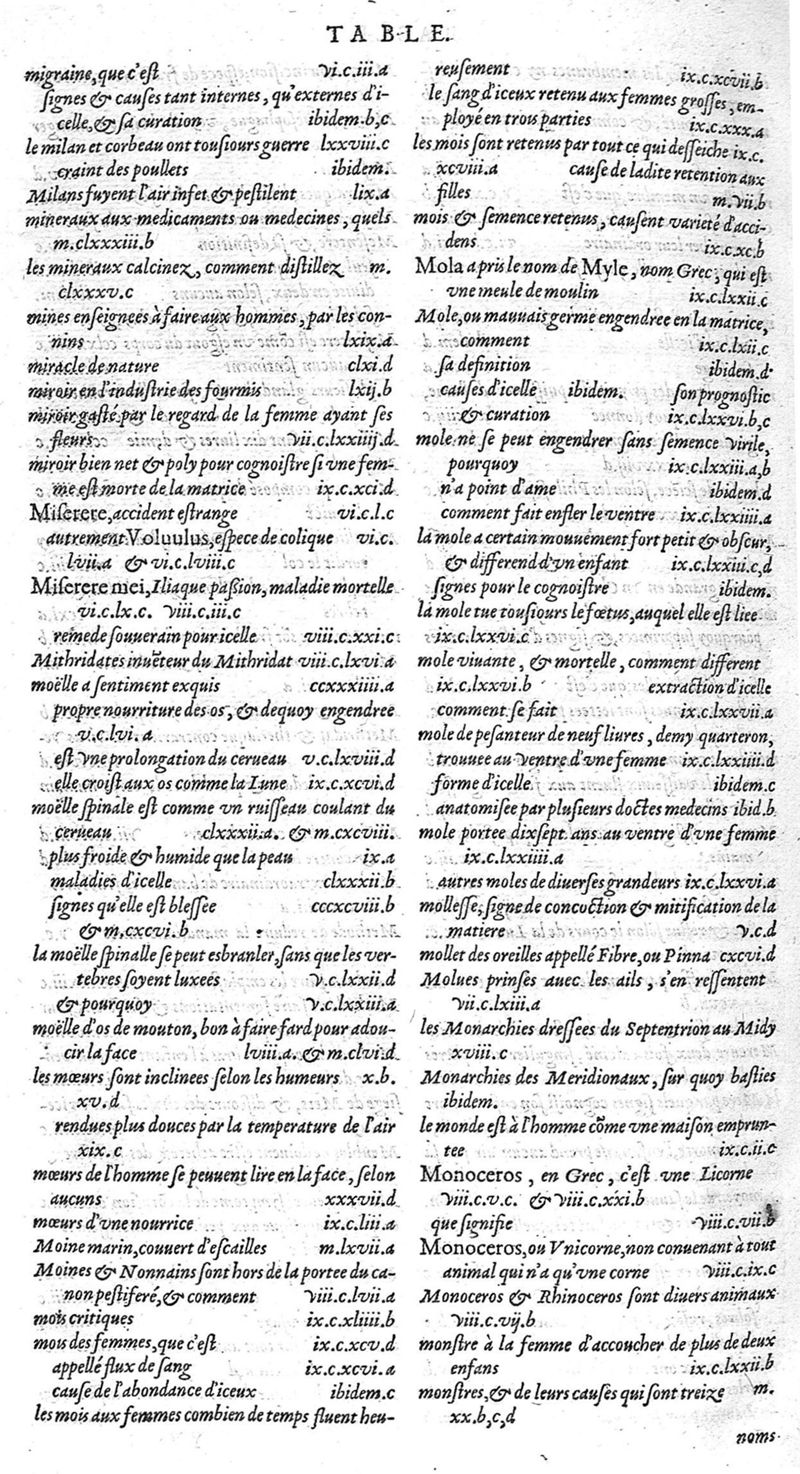 TABLE.
migraine, que c'est vi.c.iii.a
signes & causes tant internes, qu'externes d'i-
celle, & sa curation ibidem.b,c
le milan et corbeau ont tousiours guerre lxxviii.c
craint des poullets ibidem.
Milans fuyent l'air infet & pestilent lix.a
mineraux aux medicaments ou medecines, quels
m.clxxxiii.b
les mineraux calcinez, comment distillez m.
clxxxv.c
mines enseignees à faire aux hommes, par les con-
nins lxix.a
miracle de nature clxi.d
miroir en l'industrie des fourmis lxij.b
miroir gasté par le regard de la femme ayant ses
fleurs vii.c.lxxiiij.d
miroir bien net & poly pour cognoistre si vne fem-
me est morte de la matrice ix.c.xci.d
Miserere, accident estrange vi.c.l.c
autrement Voluulus, espece de colique vi.c.
lvii.a & vi.c.lviii.c
Miserere mei, Iliaque passion, maladie mortelle
vi.c.lx.c. viii.c.iii.c
remede souuerain pour icelle viii.c.xxi.c
Mithridates inuẽteur du Mithridat viii.c.lxvi.a
moëlle a sentiment exquis ccxxxiiii.a
propre nourriture des os, & dequoy engendree
v.c.lvi.a
est vne prolongation du cerueau v.c.lxviii.d
elle croist aux os comme la Lune ix.c.xcvi.d
moëlle spinale est comme vn ruisseau coulant du
cerueau clxxxii.a. & m.cxcviii.
plus froide & humide que la peau ix.a
maladies d'icelle clxxxii.b
signes qu'elle est blessee cccxcviii.b
& m.cxcvi.b
la moëlle spinalle se peut esbranler, sans que les ver-
tebres soyent luxees v.c.lxxii.d
& pourquoy v.c.lxxiii.a
moëlle d'os de mouton, bon à faire fard pour adou-
cir la face lviii.a. & m.clvi.d
les mœurs sont inclinees selon les humeurs x.b.
xv.d
rendues plus douces par la temperature de l'air
xix.c
mœurs de l'homme se peuuent lire en la face, selon
aucuns xxxvii.d
mœurs d'vne nourrice ix.c.liii.a
Moine marin, couuert d'escailles m.lxvii.a
Moines & Nonnains sont hors de la portee du ca-
non pestiferé, & comment viii.c.lvii.a
mois critiques ix.c.xliiii.b
mois des femmes, que c'est ix.c.xcv.d
appellé flux de sang ix.c.xcvi.a
cause de l'abondance d'iceux ibidem.c
les mois aux femmes combien de temps fluent heu-
reusement ix.c.xcvii.b
le sang d'iceux retenu aux femmes grosses, em-
ployé en trois parties ix.c.xxx.a
les mois sont retenus par tout ce qui desseiche ix.c.
xcviii.a cause de ladite retention aux
filles m.vii.b
mois & semence retenus, causent varieté d'acci-
dens ix.c.xc.b
Mola a pris le nom de Myle, nom Grec, qui est
vne meule de moulin ix.c.lxxii.c
Mole, ou mauuais germe engendree en la matrice,
comment ix.c.lxii.c
sa definition ibidem.d
causes d'icelle ibidem. son prognostic
& curation ix.c.lxxvi.b,c
mole ne se peut engendrer sans semence virile,
pourquoy ix.c.lxxiii.a,b
n'a point d'ame ibidem.d
comment fait enfler le ventre ix.c.lxxiiii.a
la mole a certain mouuement fort petit & obscur,
& differend d'vn enfant ix.c.lxxiii.c,d
signes pour le cognoistre ibidem.
la mole tue tousiours le fœtus, auquel elle est liee
ix.c.lxxvi.c
mole viuante, & mortelle, comment different
ix.c.lxxvi.b extraction d'icelle
comment se fait ix.c.lxxvii.a
mole de pesanteur de neuf liures, demy quarteron,
trouuee au ventre d'vne femme ix.c.lxxiiii.d
forme d'icelle ibidem.c
anatomisee par plusieurs doctes medecins ibid.b
mole portee dixsept ans au ventre d'vne femme
ix.c.lxxiiii.a
autres moles de diuerses grandeurs ix.c.lxxvi.a
mollesse, signe de concoction & mitification de la
matiere v.c.d
mollet des oreilles appellé Fibre, ou Pinna cxcvi.d
Molues prinses auec les ails, s'en ressentent
vii.c.lxiii.a
les Monarchies dressees du Septentrion au Midy
xviii.c
Monarchies des Meridionaux, sur quoy basties
ibidem.
le monde est à l'homme cõme vne maison emprun-
tee ix.c.ii.c
Monoceros, en Grec, c'est vne Licorne
viii.c.v.c. & viii.c.xxi.b
que signifie viii.c.vii.b
Monoceros, ou Vnicorne, non conuenant à tout
animal qui n'a qu'vne corne viii.c.ix.c
Monoceros & Rhinoceros sont diuers animaux
viii.c.vij.b
monstre à la femme d'accoucher de plus de deux
enfans ix.c.lxxii.b
monstres, & de leurs causes qui sont treize m.
xx.b,c,d
noms